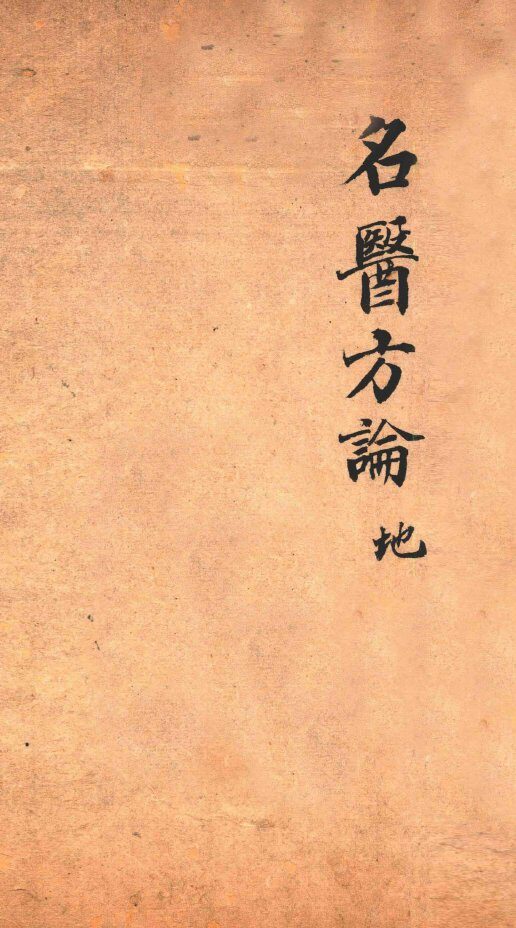 名醫方論 地